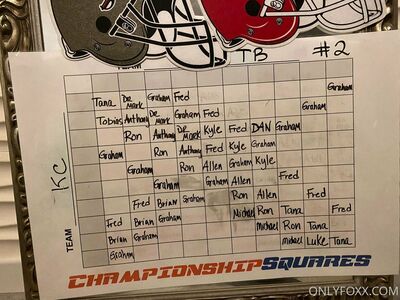 TEAM
TB
#2
Graham
Tana De Mark Graham Fred
Graham
Tobias Anthony De Mark Graham Fred
Ron Anthony De Mark Kyle Fred DAN Graham
Graham Ron Anthony Fred Kyle Graham
KC
Graham Ron Allen Graham Kyle
Graham Graham Allen Fred
Ron Allen Fred
Fred Brian Graham
Michael Ron Tana Fred
Fred Brian Graham
Michael Ron Tana
Brian Graham
Michael Luke Tana
Graham
TEAM
CHAMPIONSHIP SQUARES
ONLYFOXX.COM